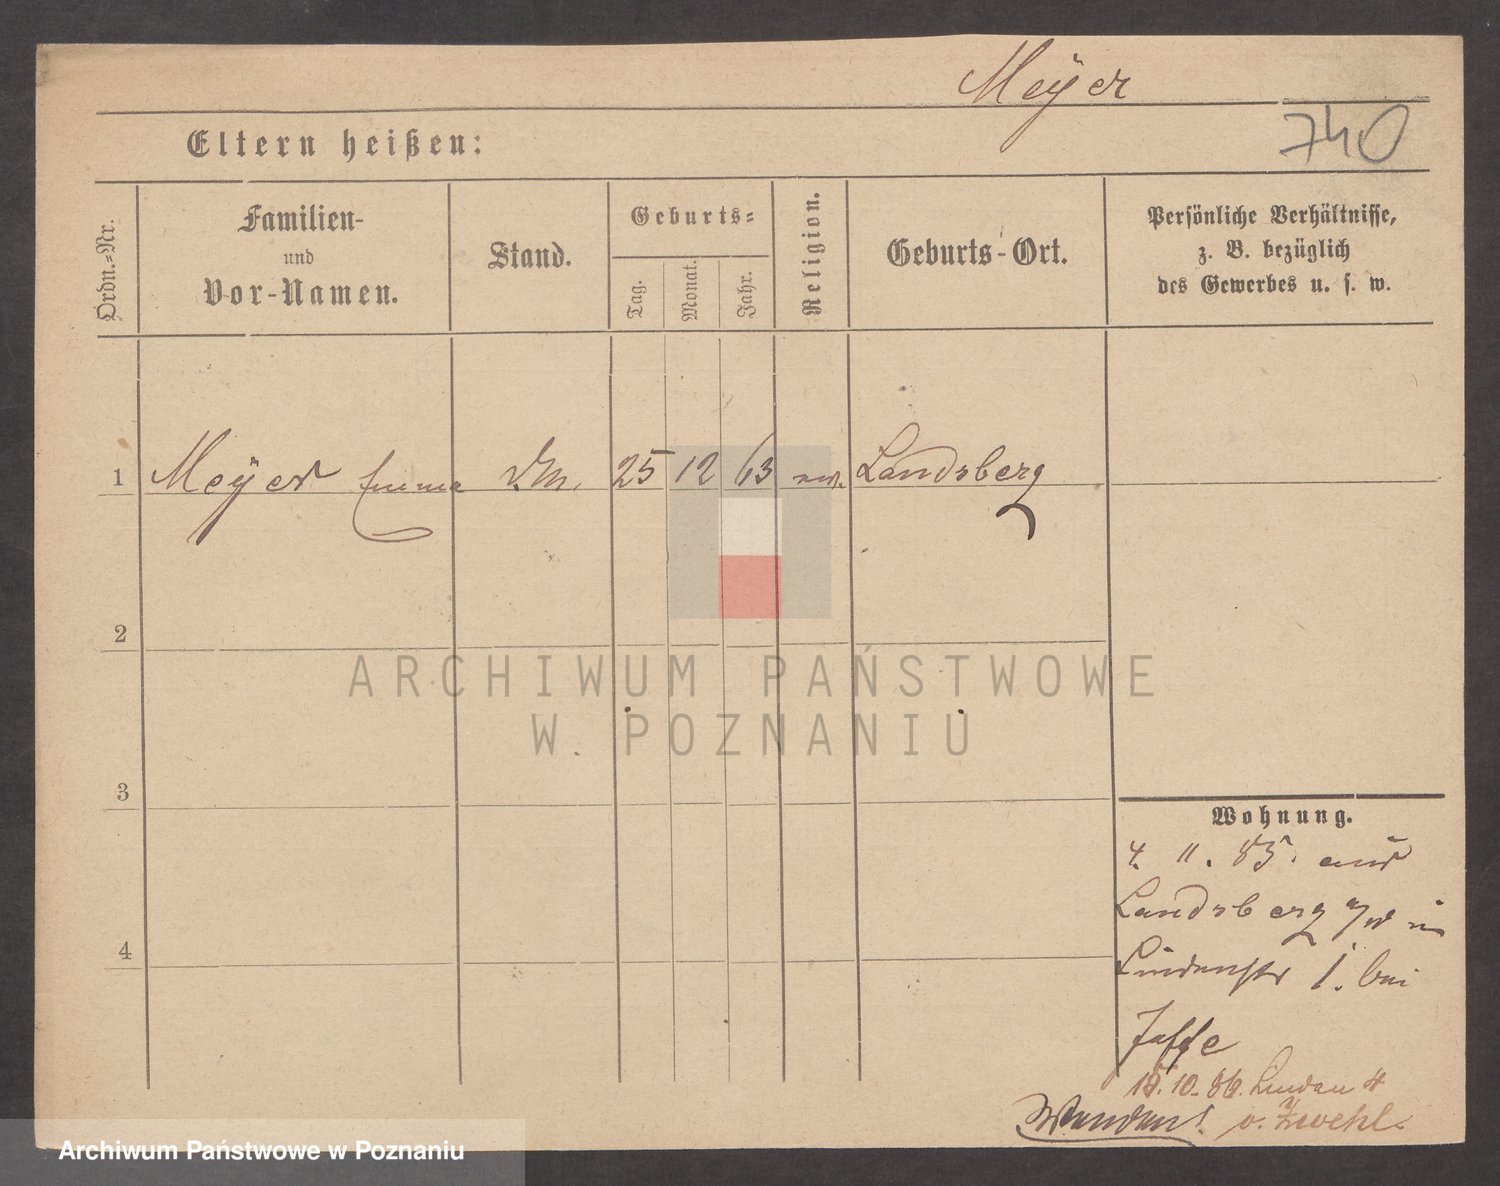 Meÿer
740
Eltern heißen:
Ordn.-Nr.
Familien-
und
Vor-Namen.
Stand.
Geburts-
Tag.
Monat.
Jahr.
Religion.
Geburts-Ort.
Persönliche Verhältnisse,
z. B. bezüglich
des Gewerbes u. s. w.
1 Meÿer Emma 25 12 63 Landsberg
2
3
4
ARCHIWUM PAŃSTWOWE
W POZNANIU
Wohnung.
4. 11. 85. aus
Landsberg
Lindenstr 1. bei
Jaffe
10. 86. Linden 4
v. Zwehl
Archiwum Państwowe w Poznaniu